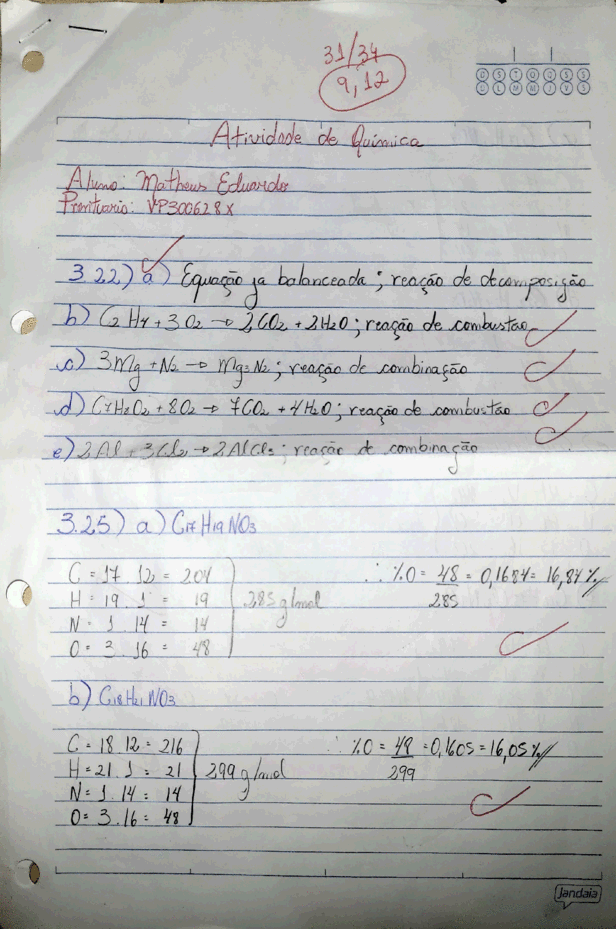 31/34
9,12
D S T Q Q S S
D L M M J V S
Atividade de Química
Aluno: Matheus Eduardo
Prontuario: VP300628X
3.22) a) Equação ja balanceada; reação de decomposição
b) C2H4 + 3O2 → 2CO2 + 2H2O; reação de combustao
c) 3Mg + N2 → Mg3N2; reação de combinação
d) C7H8O2 + 8O2 → 7CO2 + 4H2O; reação de combustao
e) 2Al + 3Cl2 → 2AlCl3; reação de combinação
3.25) a) C17H19NO3
C = 17 . 12 = 204
H = 19 . 1 = 19
N = 1 . 14 = 14
O = 3 . 16 = 48
285 g/mol
∴ %O = 48/285 = 0,1684 = 16,84%
b) C18H21NO3
C = 18 . 12 = 216
H = 21 . 1 = 21
N = 1 . 14 = 14
O = 3 . 16 = 48
299 g/mol
∴ %O = 48/299 = 0,1605 = 16,05%
Jandaia